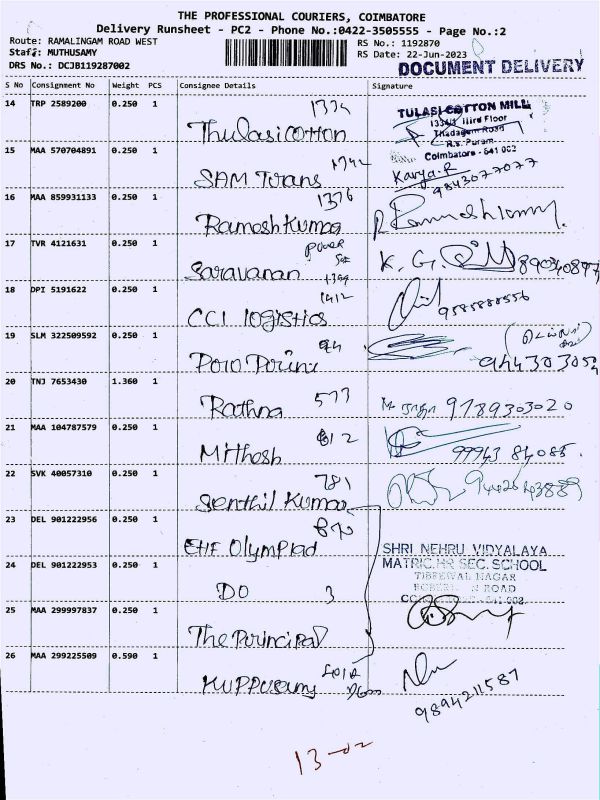 THE PROFESSIONAL COURIERS, COIMBATORE
Delivery Runsheet - PC2 - Phone No.:0422-3505555 - Page No.:2
Route: RAMALINGAM ROAD WEST
RS No.: 1192870
Staff: MUTHUSAMY
RS Date: 22-Jun-2023
DRS No.: DCJB119287002
DOCUMENT DELIVERY
S No Consignment No Weight PCS Consignee Details Signature
14 TRP 2589200 0.250 1
1334
Thulasicotton
TULASI COTTON MILL
1334/1 IIIrd Floor
Thadagam Road
R.S. Puram
Coimbatore - 641 002
15 MAA 570704891 0.250 1
1342
SAM Trans
Karya.R
9843077077
16 MAA 859931133 0.250 1
1376
Ramesh Kumar
17 TVR 4121631 0.250 1
power
Saravanan
K. G.
18 DPI 5191622 0.250 1
1412
CCI logistics
9585888556
19 SLM 322509592 0.250 1
20 TNJ 7653430 1.360 1
577
Rathna
9789303020
21 MAA 104787579 0.250 1
612
Mithosh
99943 84085.
22 SVK 40057310 0.250 1
781
Senthil Kumar
23 DEL 901222956 0.250 1
Olympiad
SHRI NEHRU VIDYALAYA
MATRIC. HR SEC. SCHOOL
24 DEL 901222953 0.250 1
DO 3
25 MAA 299997837 0.250 1
The Principal
26 MAA 299225509 0.590 1
Kuppusamy
9894211587
13-02